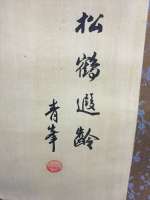 松鶴遐齡
青峯